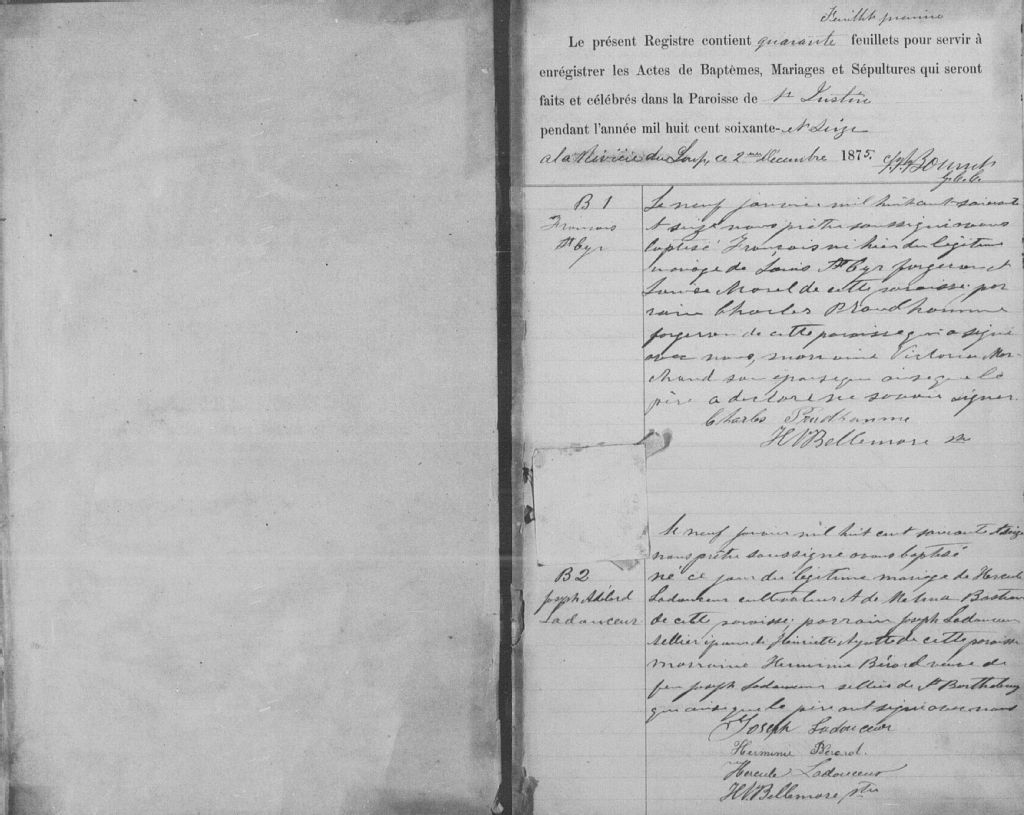 Feuillet premier
Le présent Registre contient quarante feuillets pour servir à
enrégistrer les Actes de Baptêmes, Mariages et Sépultures qui seront
faits et célébrés dans la Paroisse de St Justin
pendant l'année mil huit cent soixante- et seize
a la Rivière du Loup, ce 2 Décembre 1875.
G.C.C.
B 1
François
St Cyr
Le neuf janvier mil huit cent soixante
et seize nous prêtre soussigné avons
baptisé François né hier du légitime
mariage de Louis St Cyr forgeron et
Louise Morel de cette paroisse; par
rain Charles Proudhomme
forgeron de cette paroisse qui a signé
avec nous, marraine Victoria Mar
chand son épouse qui ainsi que le
père a déclaré ne savoir signer.
Charles Prudhomme
H Bellemare ptre
B 2
Joseph Adélard
Ladouceur
Le neuf janvier mil huit cent soixante et seize
nous prêtre soussigné avons baptisé
né ce jour du légitime mariage de Hercule
Ladouceur cultivateur et de Melina Bastien
de cette paroisse; parrain Joseph Ladouceur
sellier époux de Henriette Ayotte de cette paroisse
marraine Herminie Bérard veuve de
feu Joseph Ladouceur sellier de St Barthelemy
qui ainsi que le père ont signé avec nous
Joseph Ladouceur
Herminie Berard.
Hercule Ladouceur
H Bellemare ptre